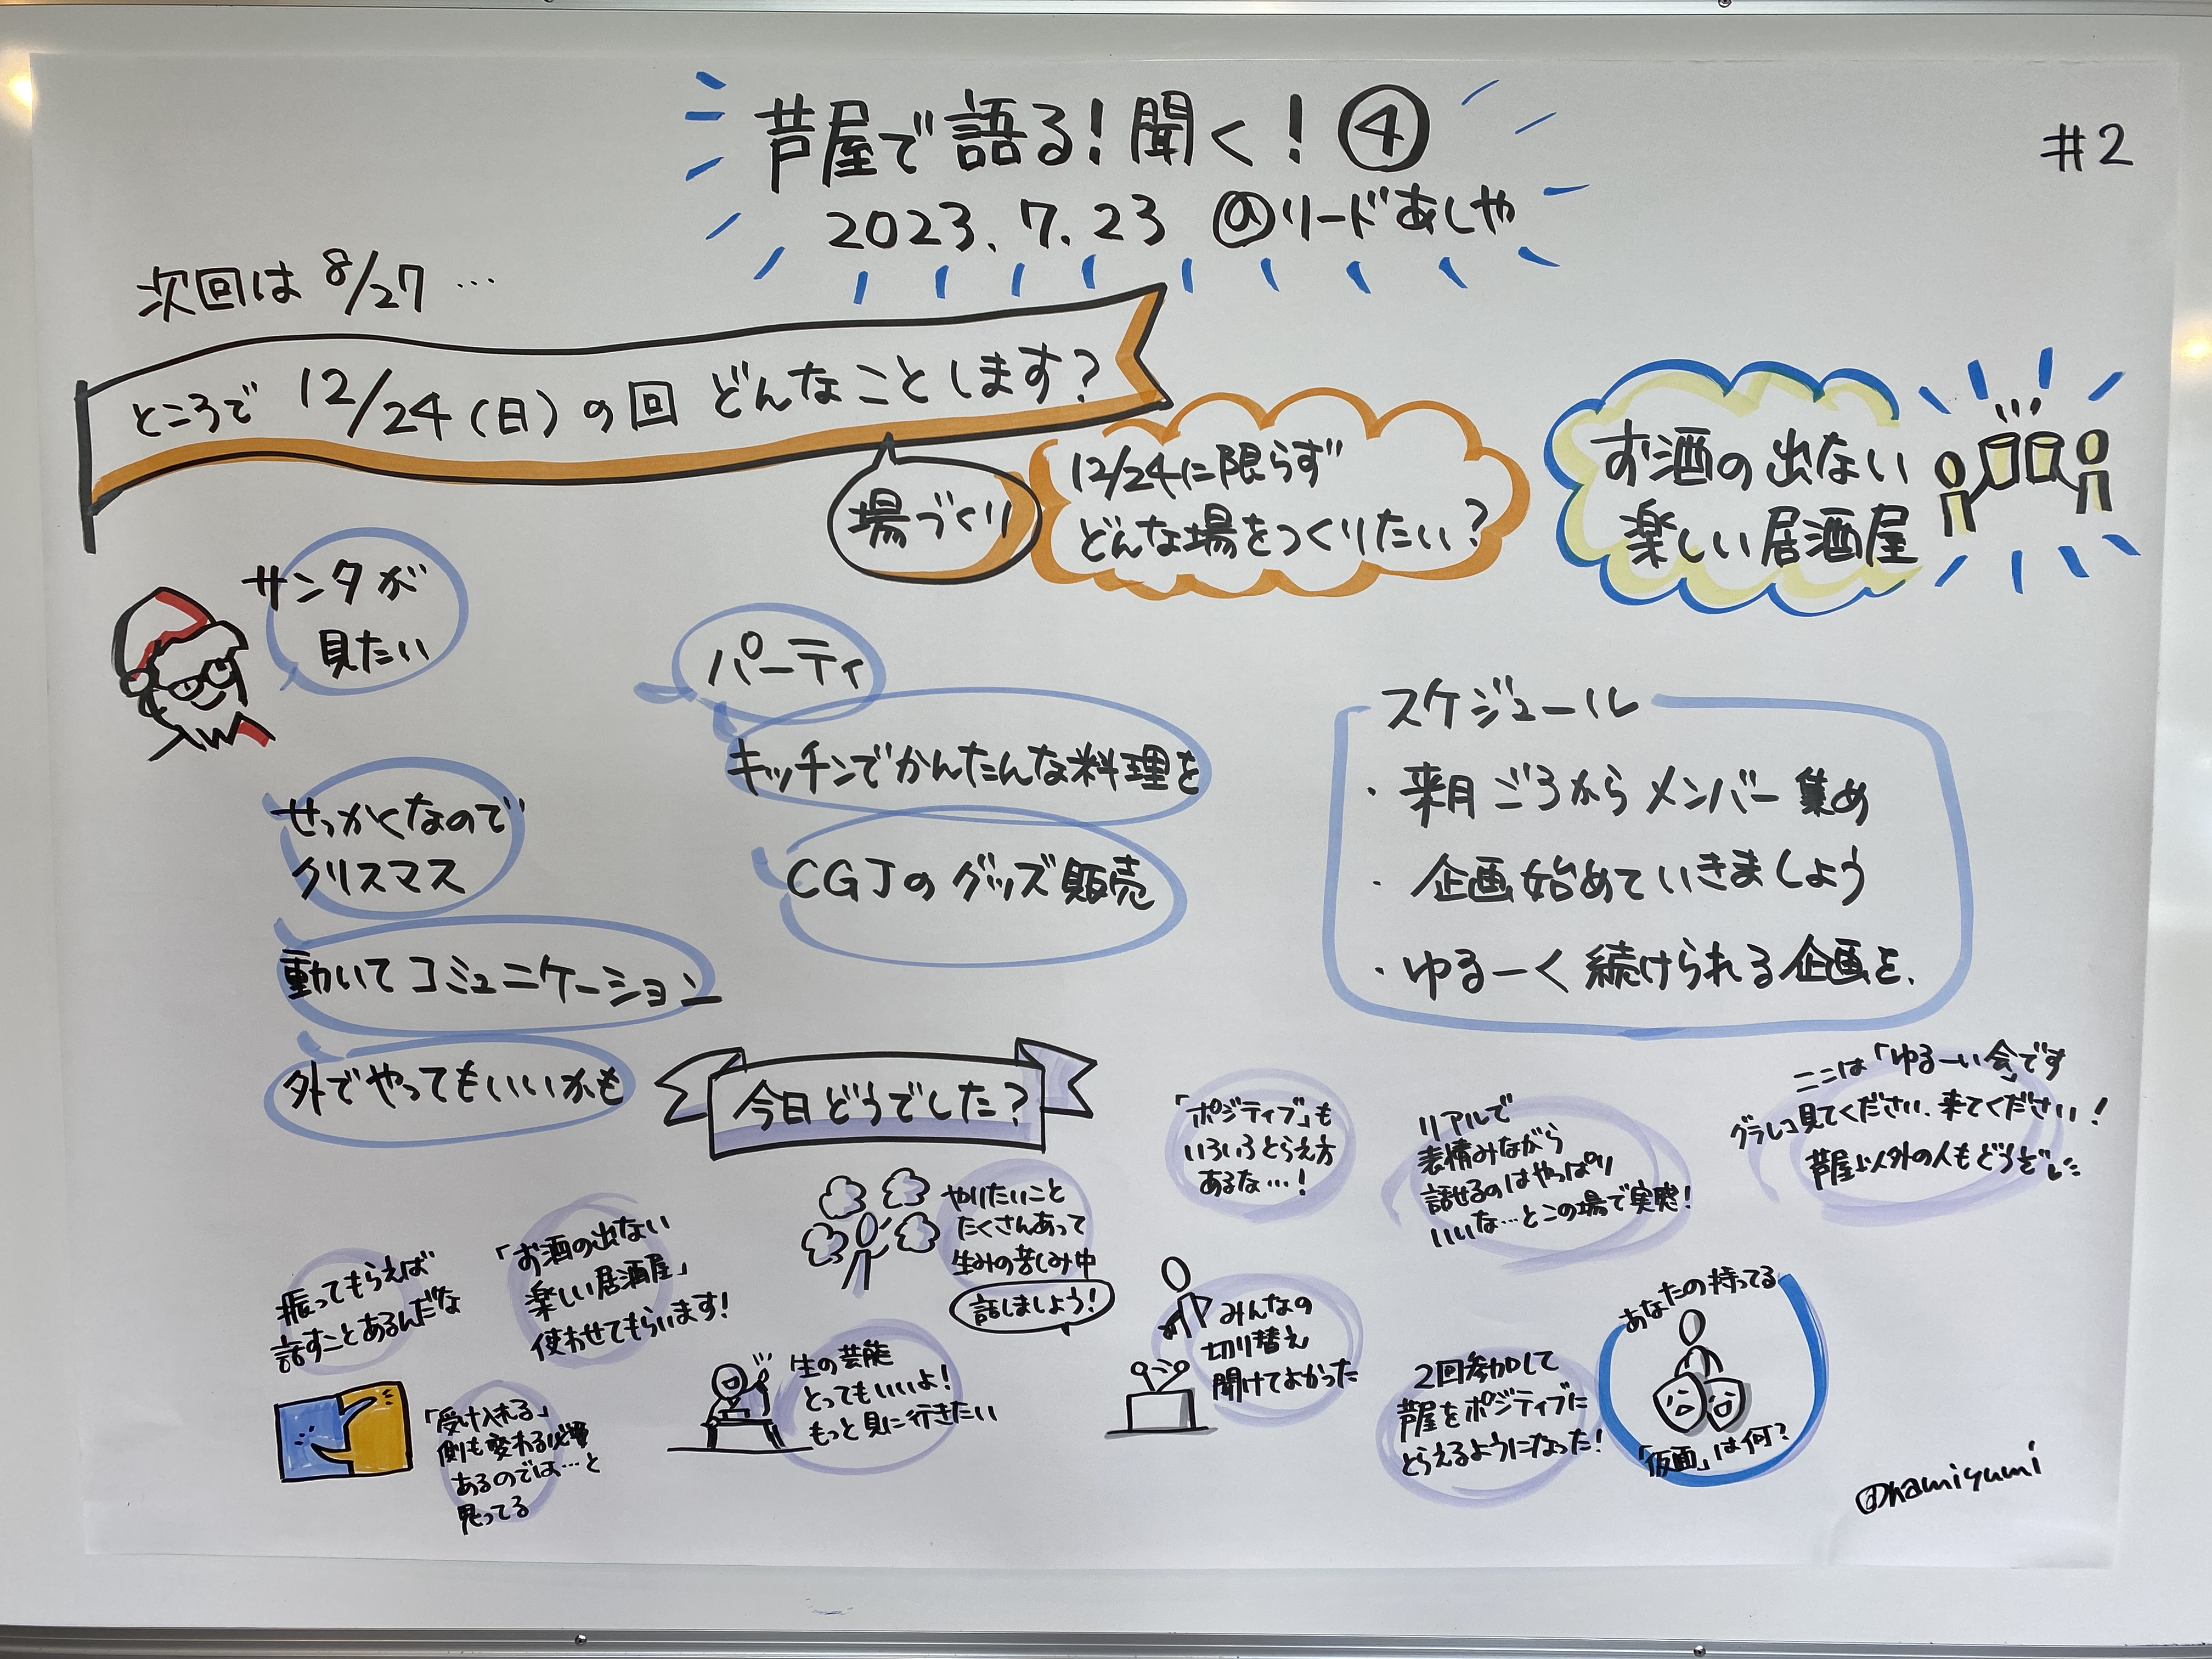 芦屋で語る!聞く!④
2023.7.23 @リードあしや
#2
次回は 8/27 …
ところで 12/24(日)の回 どんなことします?
場づくり
12/24に限らず
どんな場をつくりたい?
お酒の出ない
楽しい居酒屋
サンタが
見たい
せっかくなので
クリスマス
動いてコミュニケーション
外でやってもいいかも
パーティ
キッチンでかんたんな料理を
CGJのグッズ販売
スケジュール
・来月ごろからメンバー集め
・企画始めていきましょう
・ゆるーく続けられる企画を.
今日どうでした?
振ってもらえば
話すことあるんだな
「お酒の出ない
楽しい居酒屋」
使わせてもらいます!
やりたいこと
たくさんあって
生みの苦しみ中
話しましょう!
「ポジティブ」も
いろいろとらえ方
あるな…!
リアルで
表情みながら
話せるのはやっぱり
いいな…とこの場で実感!
ここは「ゆるーい会」です
グラレコ見てください、来てください!
芦屋以外の人もどうぞ
「受け入れる」
側も変わる必要
あるのでは…と
思ってる
生の芸能
とってもいいよ!
もっと見に行きたい
みんなの
切り替え
聞けてよかった
2回参加して
芦屋をポジティブに
とらえるようになった!
あなたの持ってる
「仮面」は何?
@hamiyumi